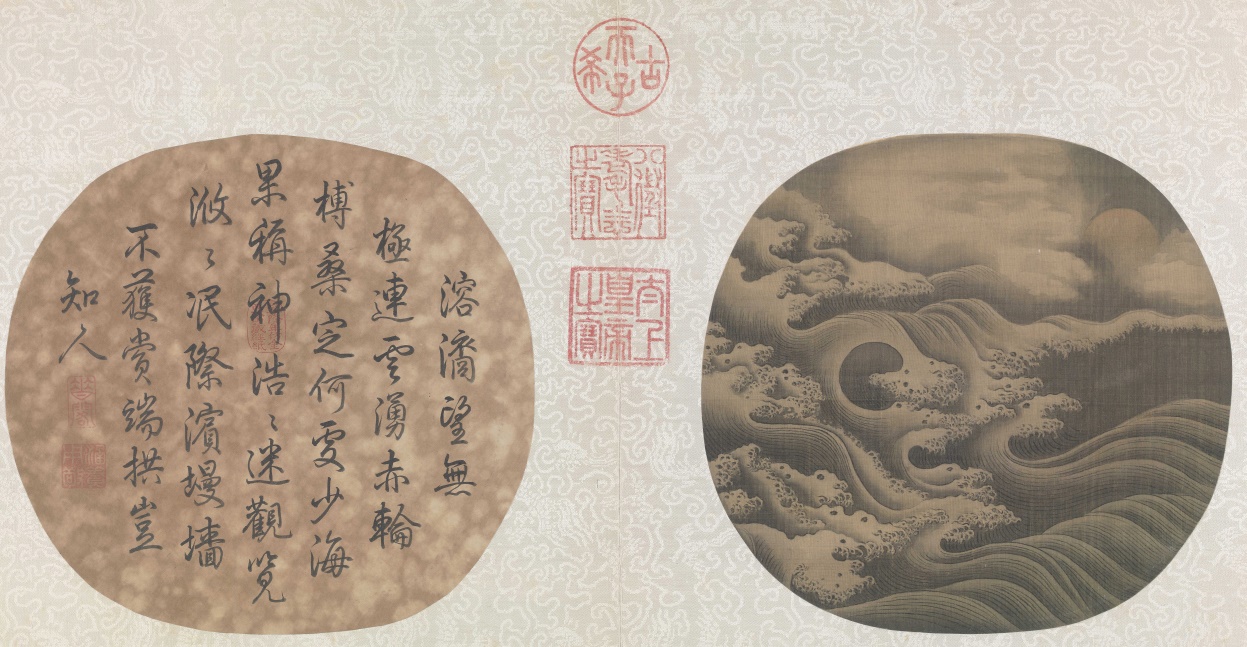 古希天子
八徵耄念之寶
太上皇帝之寶
溶望無
極連雲湧赤輪
榑桑定何處少海
果稱神浩〻迷觀覽
浟〻泯際濱墁墻
不獲賞端拱豈
知人